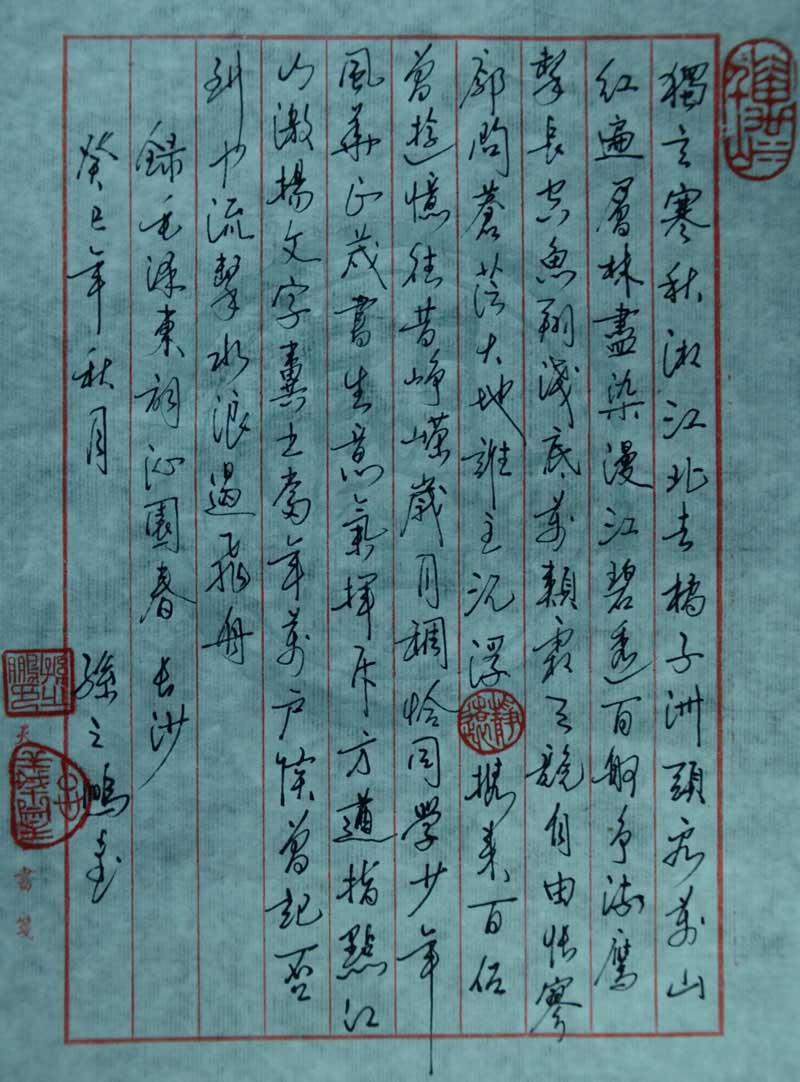 獨立寒秋湘江北去橘子洲頭看萬山
紅遍層林盡染漫江碧透百舸爭流鷹
擊長空魚翔淺底萬類霜天競自由悵寥
廓問蒼茫大地誰主沉浮靜遠携來百侶
曾遊憶往昔崢嶸歲月稠恰同學少年
風華正茂書生意氣揮斥方遒指點江
山激揚文字糞土當年萬戶侯曾記否
到中流擊水浪遏飛舟
錄毛澤東詞沁園春 長沙
癸巳年秋月 孫之鵬書
書箋